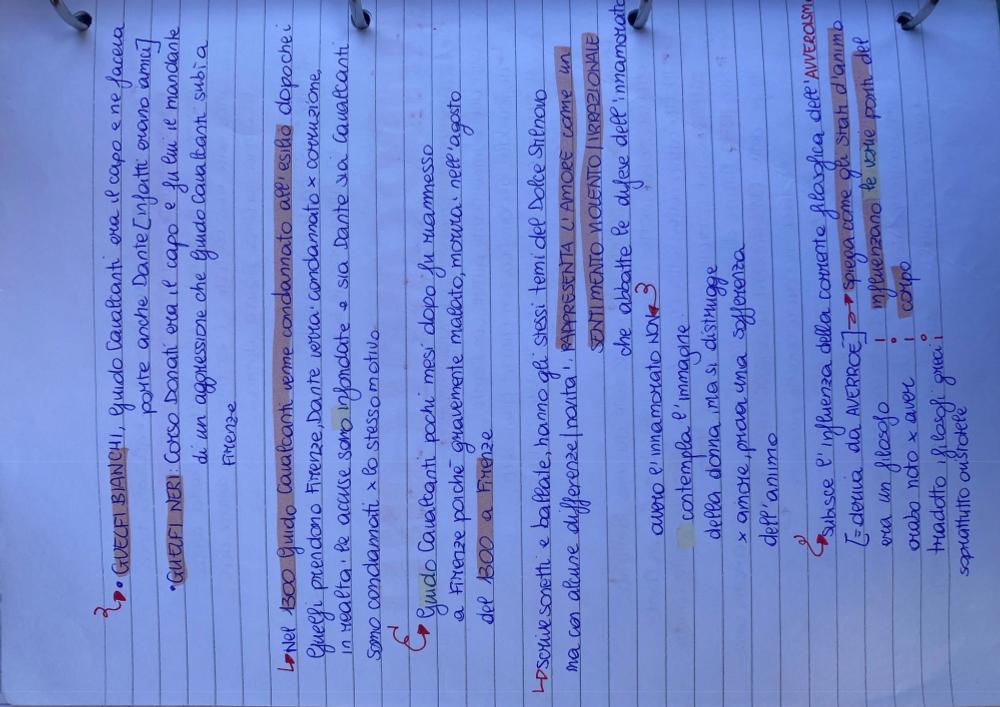 • GUELFI BIANCHI, Guido Cavalcanti era il capo e ne faceva
parte anche Dante [infatti erano amici]
• GUELFI NERI: Corso Donati era il capo e fu lui il mandante
di un aggressione che Guido Cavalcanti subì a
Firenze
Nel 1300 Guido Cavalcanti venne condannato all'esilio dopo che i
Guelfi prendono Firenze, Dante verra' condannato x corruzione,
in realta' le accuse sono infondate e sia Dante sia Cavalcanti
sono condannati x lo stesso motivo
Guido Cavaltanti pochi mesi dopo fu riammesso
a Firenze poiché gravemente malato, morira' nell'agosto
del 1300 a Firenze
scrive sonetti e ballate, hanno gli stessi temi del Dolce Stilnovo
ma con alcune differenze/novita' RAPPRESENTA L'AMORE come un
SENTIMENTO VIOLENTO/IRRAZIONALE
che abbatte le difese dell'innamorato
ovvero l'innamorato NON
contempla l'immagine
della donna, ma si distrugge
x amore, prova una sofferenza
dell'animo
Subisce l'influenza della corrente filosofica dell'AVVEROISMO
[=deriva da AVERROÈ] → spiega come gli stati d'animo
era un filosofo ! influenzano le varie parti del
arabo noto x aver ! corpo
tradotto i filosofi greci !
soprattutto Aristotele